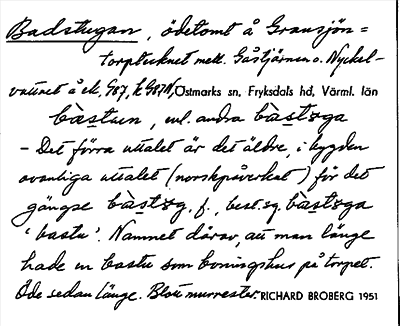 Badstugan, ödetomt å Gransjön=
torpet mell. Gåstjärnen o. Nyckel-
vattnet å ek, G87, Östmarks sn, Fryksdals hd, Värml. län
bàstuen, ml. andra bàstoga
– Det förra uttalet är det äldre, i bygden
ovanliga uttalet (norskpåverkat) för det
gängse bàstog, f., best. sg. bàstoga
'bastu'. Namnet därav, att man länge
hade en bastu som boningshus på torpet.
Öde sedan länge. Blott murrester. RICHARD BROBERG 1951